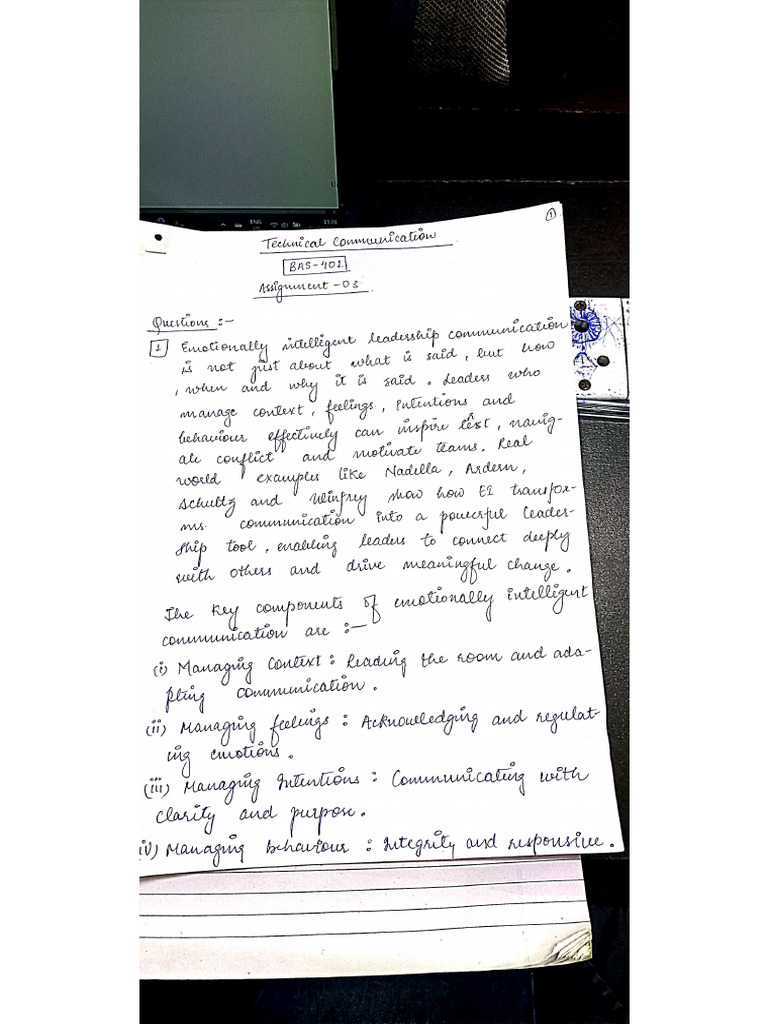 ENG
15:01
①
Technical Communication
BAS-402
Assignment - 03
Questions :-
1 Emotionally intelligent leadership communication
is not just about what is said, but how
, when and why it is said. Leaders who
manage context, feelings, intentions and
behaviour effectively can inspire, navig-
ate conflict and motivate teams. Real
world examples like Nadella, Ardern,
Schultz and Winfrey show how EI transfor-
ms communication into a powerful leader-
ship tool, enabling leaders to connect deeply
with others and drive meaningful change.
The key components of emotionally intelligent
communication are :-
(i) Managing Context : Reading the room and ada-
pting communication.
(ii) Managing feelings : Acknowledging and regulat-
ing emotions.
(iii) Managing Intentions : Communicating with
clarity and purpose.
iv) Managing behaviour : Integrity and responsive.